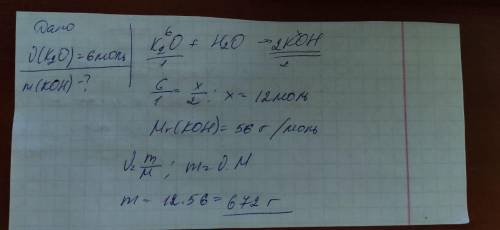 Дано
υ(K₂O)=6моль
m(KOH)-?
6 x
K₂O + H₂O → 2KOH
1 2
6/1 = x/2 ; x = 12моль
Mr(KOH) = 56 г/моль
υ = m/M ; m = υ·M
m = 12·56 = 672 г